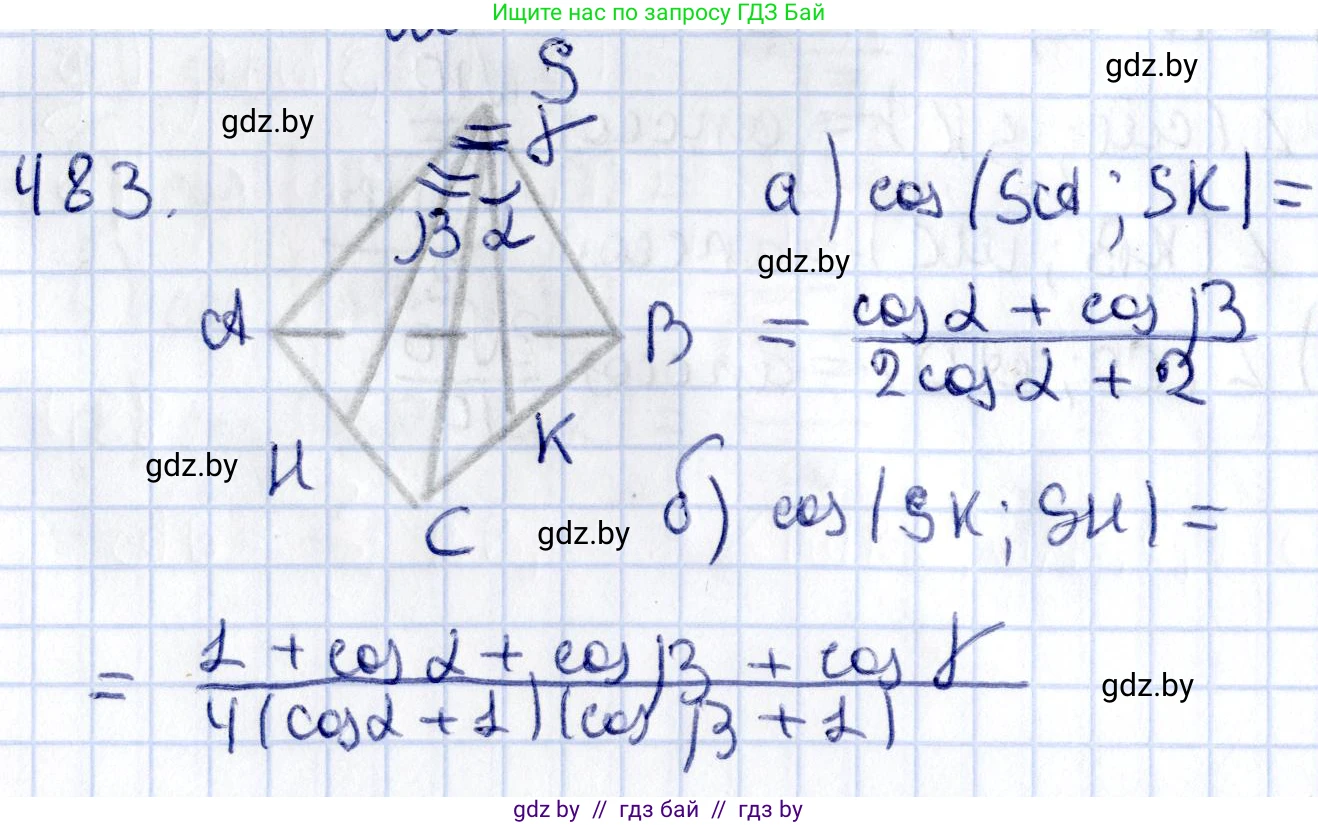 Ищите нас по запросу ГДЗ Бай
gdz.by
S
gdz.by
γ
483.
а) cos(SA; SK) =
β α
gdz.by
A
B
= cos α + cos β
2 cos α + 2
K
gdz.by
H
б) cos(SK; SH) =
C
gdz.by
= 1 + cos α + cos β + cos γ
4(cos α + 1)(cos β + 1)
gdz.by
gdz.by // гдз бай // gdz by